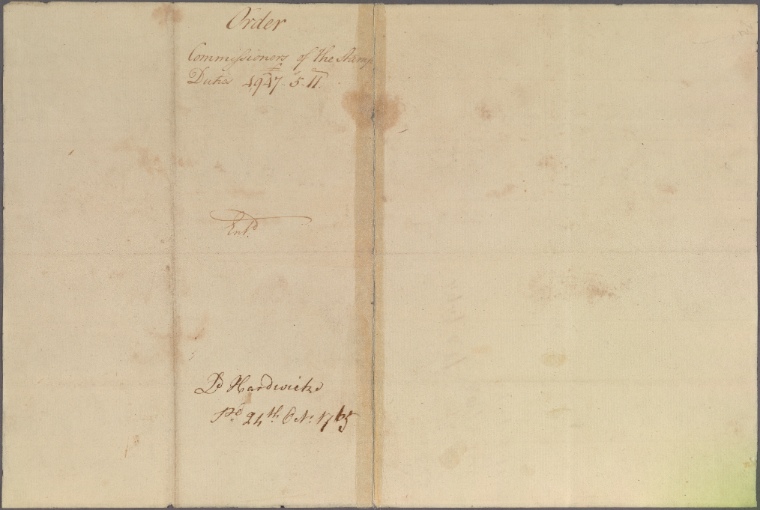 Order
Commissioners of the Stamp
Duties 4947. 5. 11.
Ent.d
Ld Hardwicke
Pd. 24th. Oct. 1765